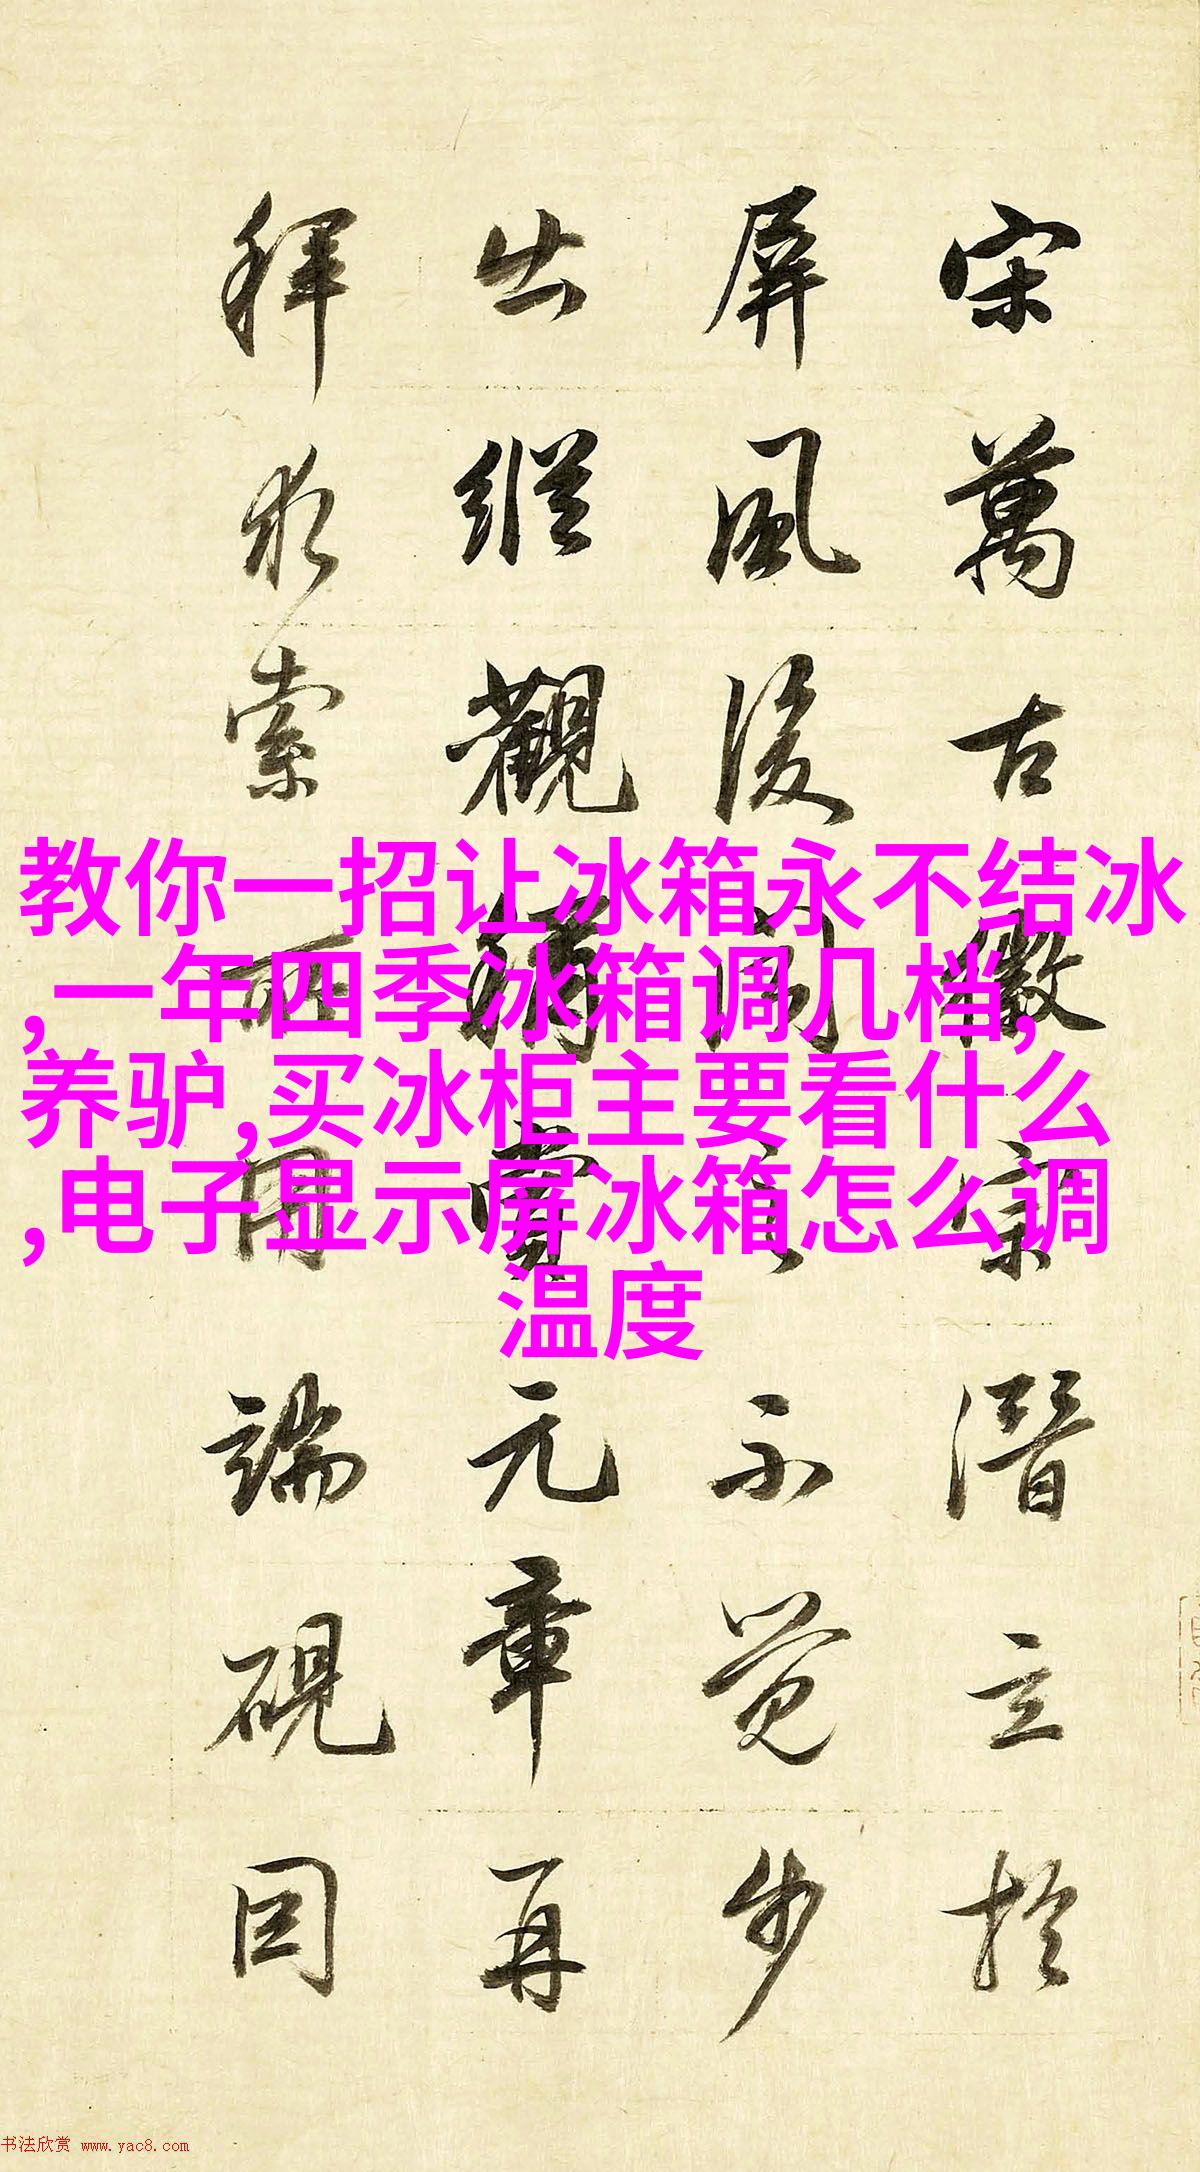 教你一招让冰箱永不结冰
,一年四季冰箱调几档,
养驴,买冰柜主要看什么
,电子显示屏冰箱怎么调
温度
宋萬古徽宗潛立於
屏風後聞言不覺步
出縱觀稱賞元章再
拜求索所用端硯因
书法欣赏 www.yac8.com